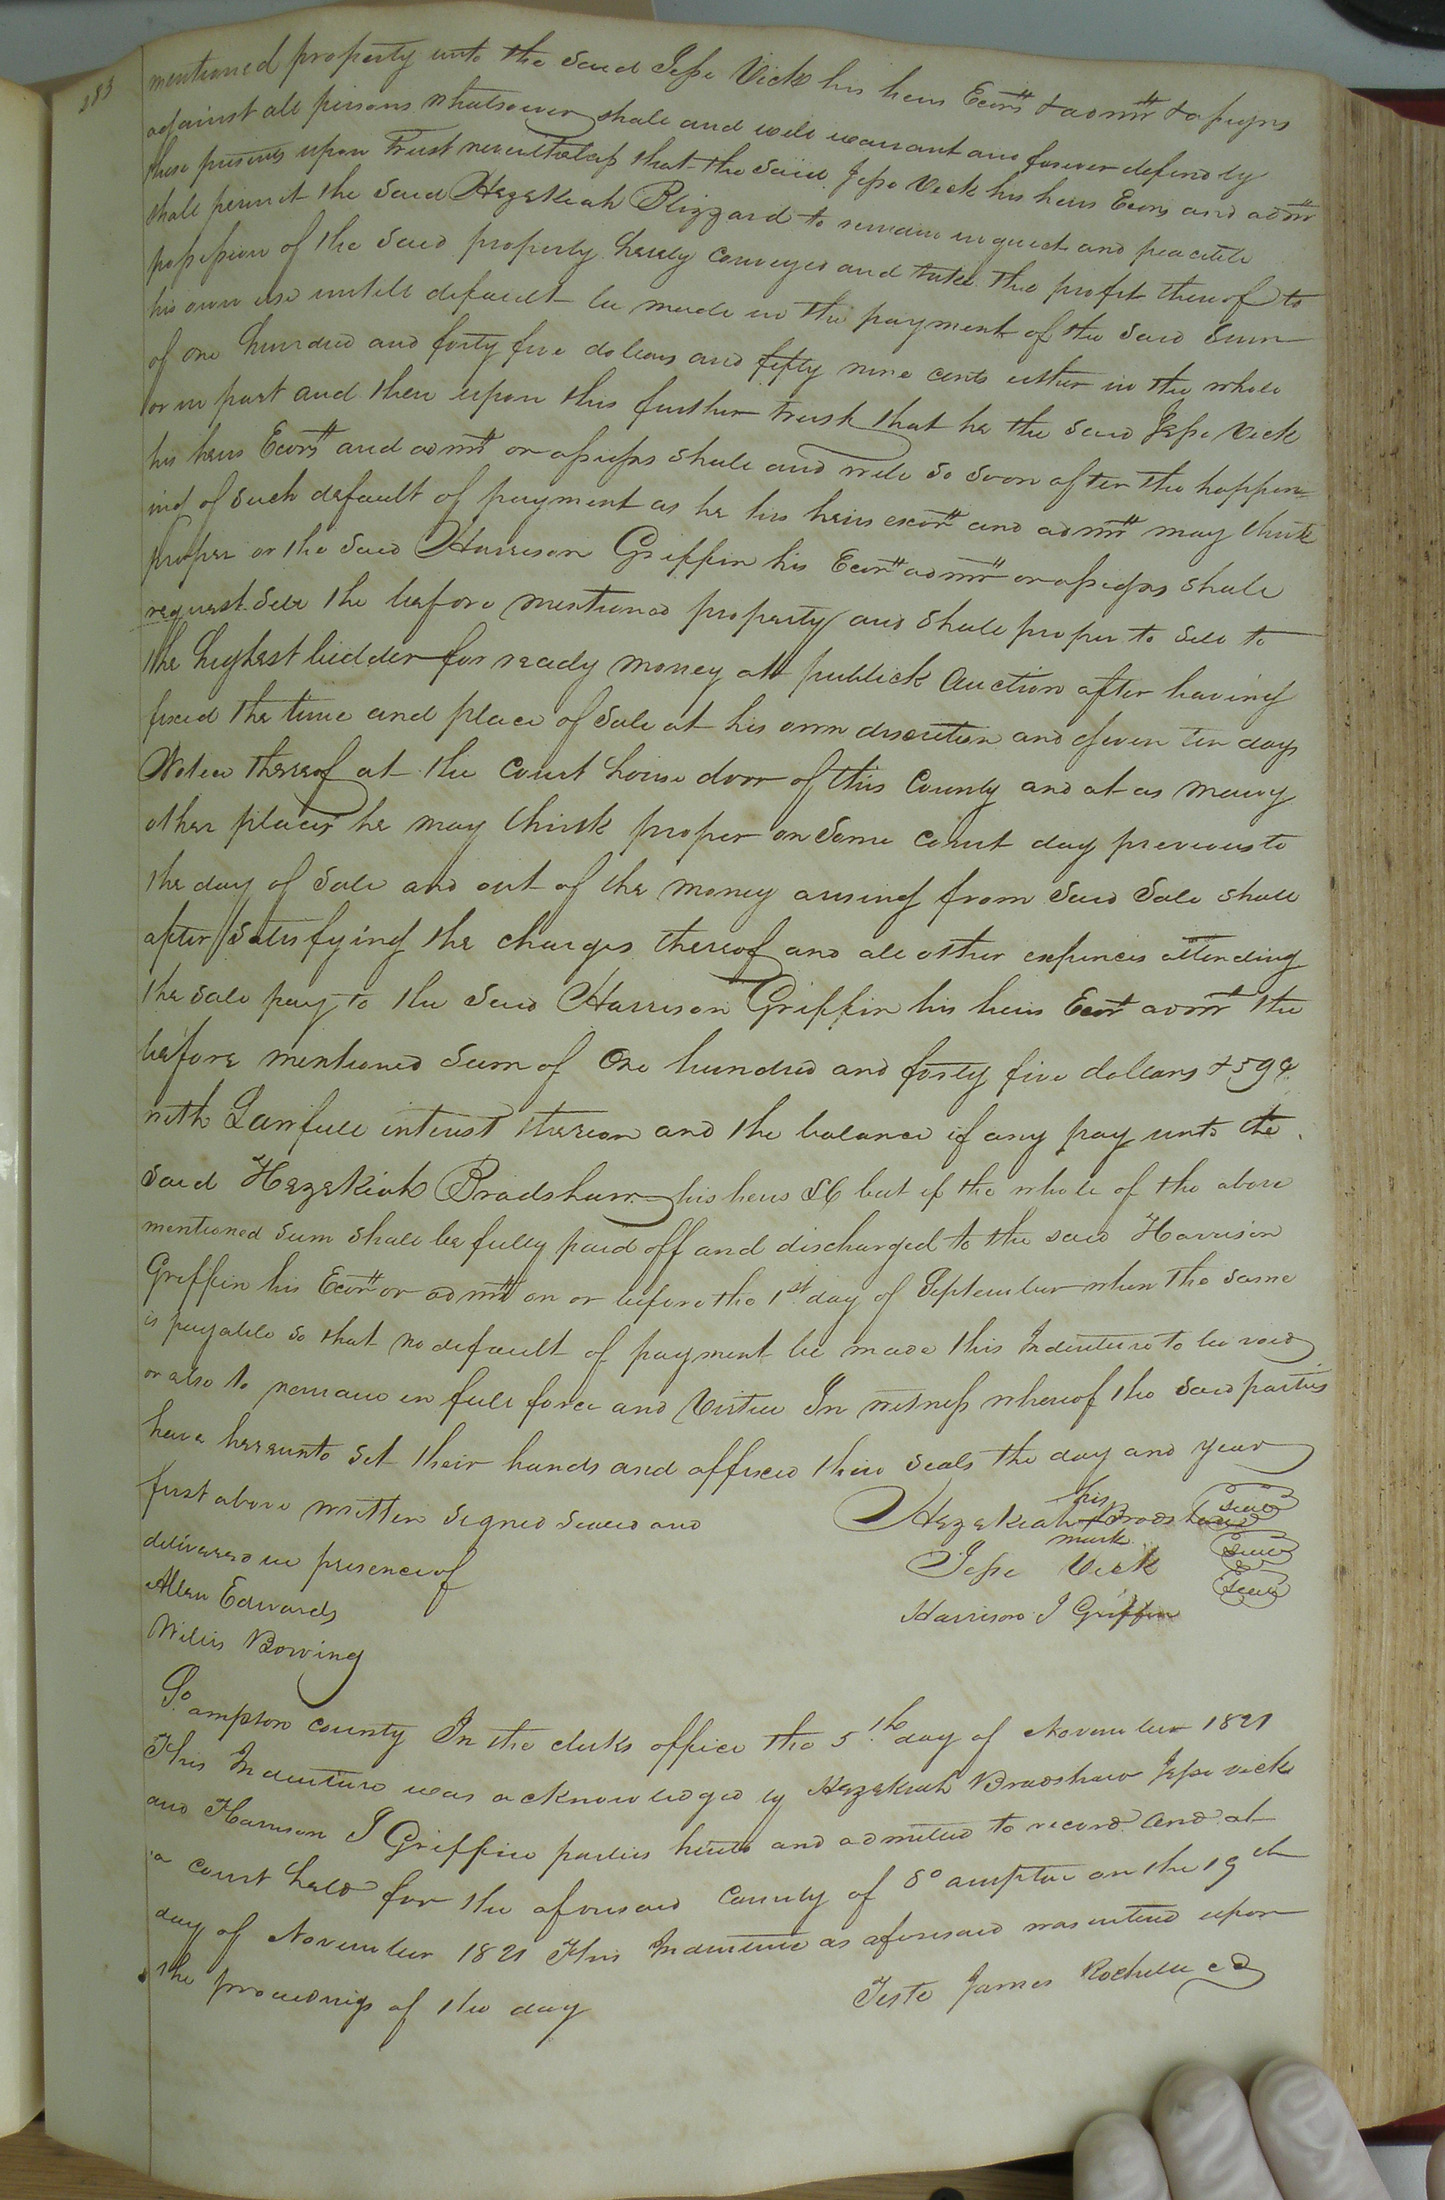 283
mentioned property unto the Said Jesse Vick his heirs Ecors & admrs & assigns
against all persons whatsoever shall and will warrant and forever defend by
these presents upon Trust nevertheless that the Said Jesse Vick his heirs Ecors and admr
shall permit the Said Hezekiah Blizzard to remain in quiet and peaceble
possession of the Said property hereby conveyed and take the profit thereof to
his own use untill default be made in the payment of the Said Sum
of one hundred and forty five dollars and fifty nine cents either in the whole
or in part and then upon this further trust that he the Said Jesse Vick
his heirs Ecors and admrs or assigns shall and will so soon after the happen=
ing of such default of payment as he his heirs excors and admrs may think
proper or the Said Harrison Griffin his Ecors admrs or assigns shall
request Sell the before mentioned property and shall proper to Sell to
the highest bidder for ready money at publick Auction after having
fixed the time and place of Sale at his own discretion and given ten days
Notice thereof at the court house door of this County and at as many
other places he may think proper on Some court day previous to
the day of Sale and out of the money arising from Said Sale shall
after Satisfying the charges thereof and all other expences attending
the Sale pay to the Said Harrison Griffin his heirs Ecor admr the
before mentioned Sum of One hundred and forty five dollars & 59 c
with Lawfull interest thereon and the balance if any pay unto the
Said Hezekiah Bradshaw his heirs &c but if the whole of the above
mentioned Sum Shall be fully paid off and discharged to the said Harrison
Griffin his Ecors or admrs on or before the 1st day of September when the same
is payable so that no default of payment be made this Indenture to be void
or else to remain in full force and Virtue In witness whereof the Said parties
have hereunto Set their hands and affixed their seals the day and year
first above written Signed Sealed and
delivered in presence of
Allen Edwards
Willis Bowing
his
Hezekiah Bradshaw Seal
mark
Jesse Vick Seal
Harrison J Griffin Seal
So. ampton county In the clerks office the 5th day of November 1821
This Indenture was acknowledged by Hezekiah Bradshaw Jesse vick
and Harrison J Griffin parties hereto and admitted to record And at
a court held for the aforesaid County of So ampton on the 19th
day of November 1821 This Indenture as aforesaid was entered upon
the proceedings of the day
Teste James Rochelle cs